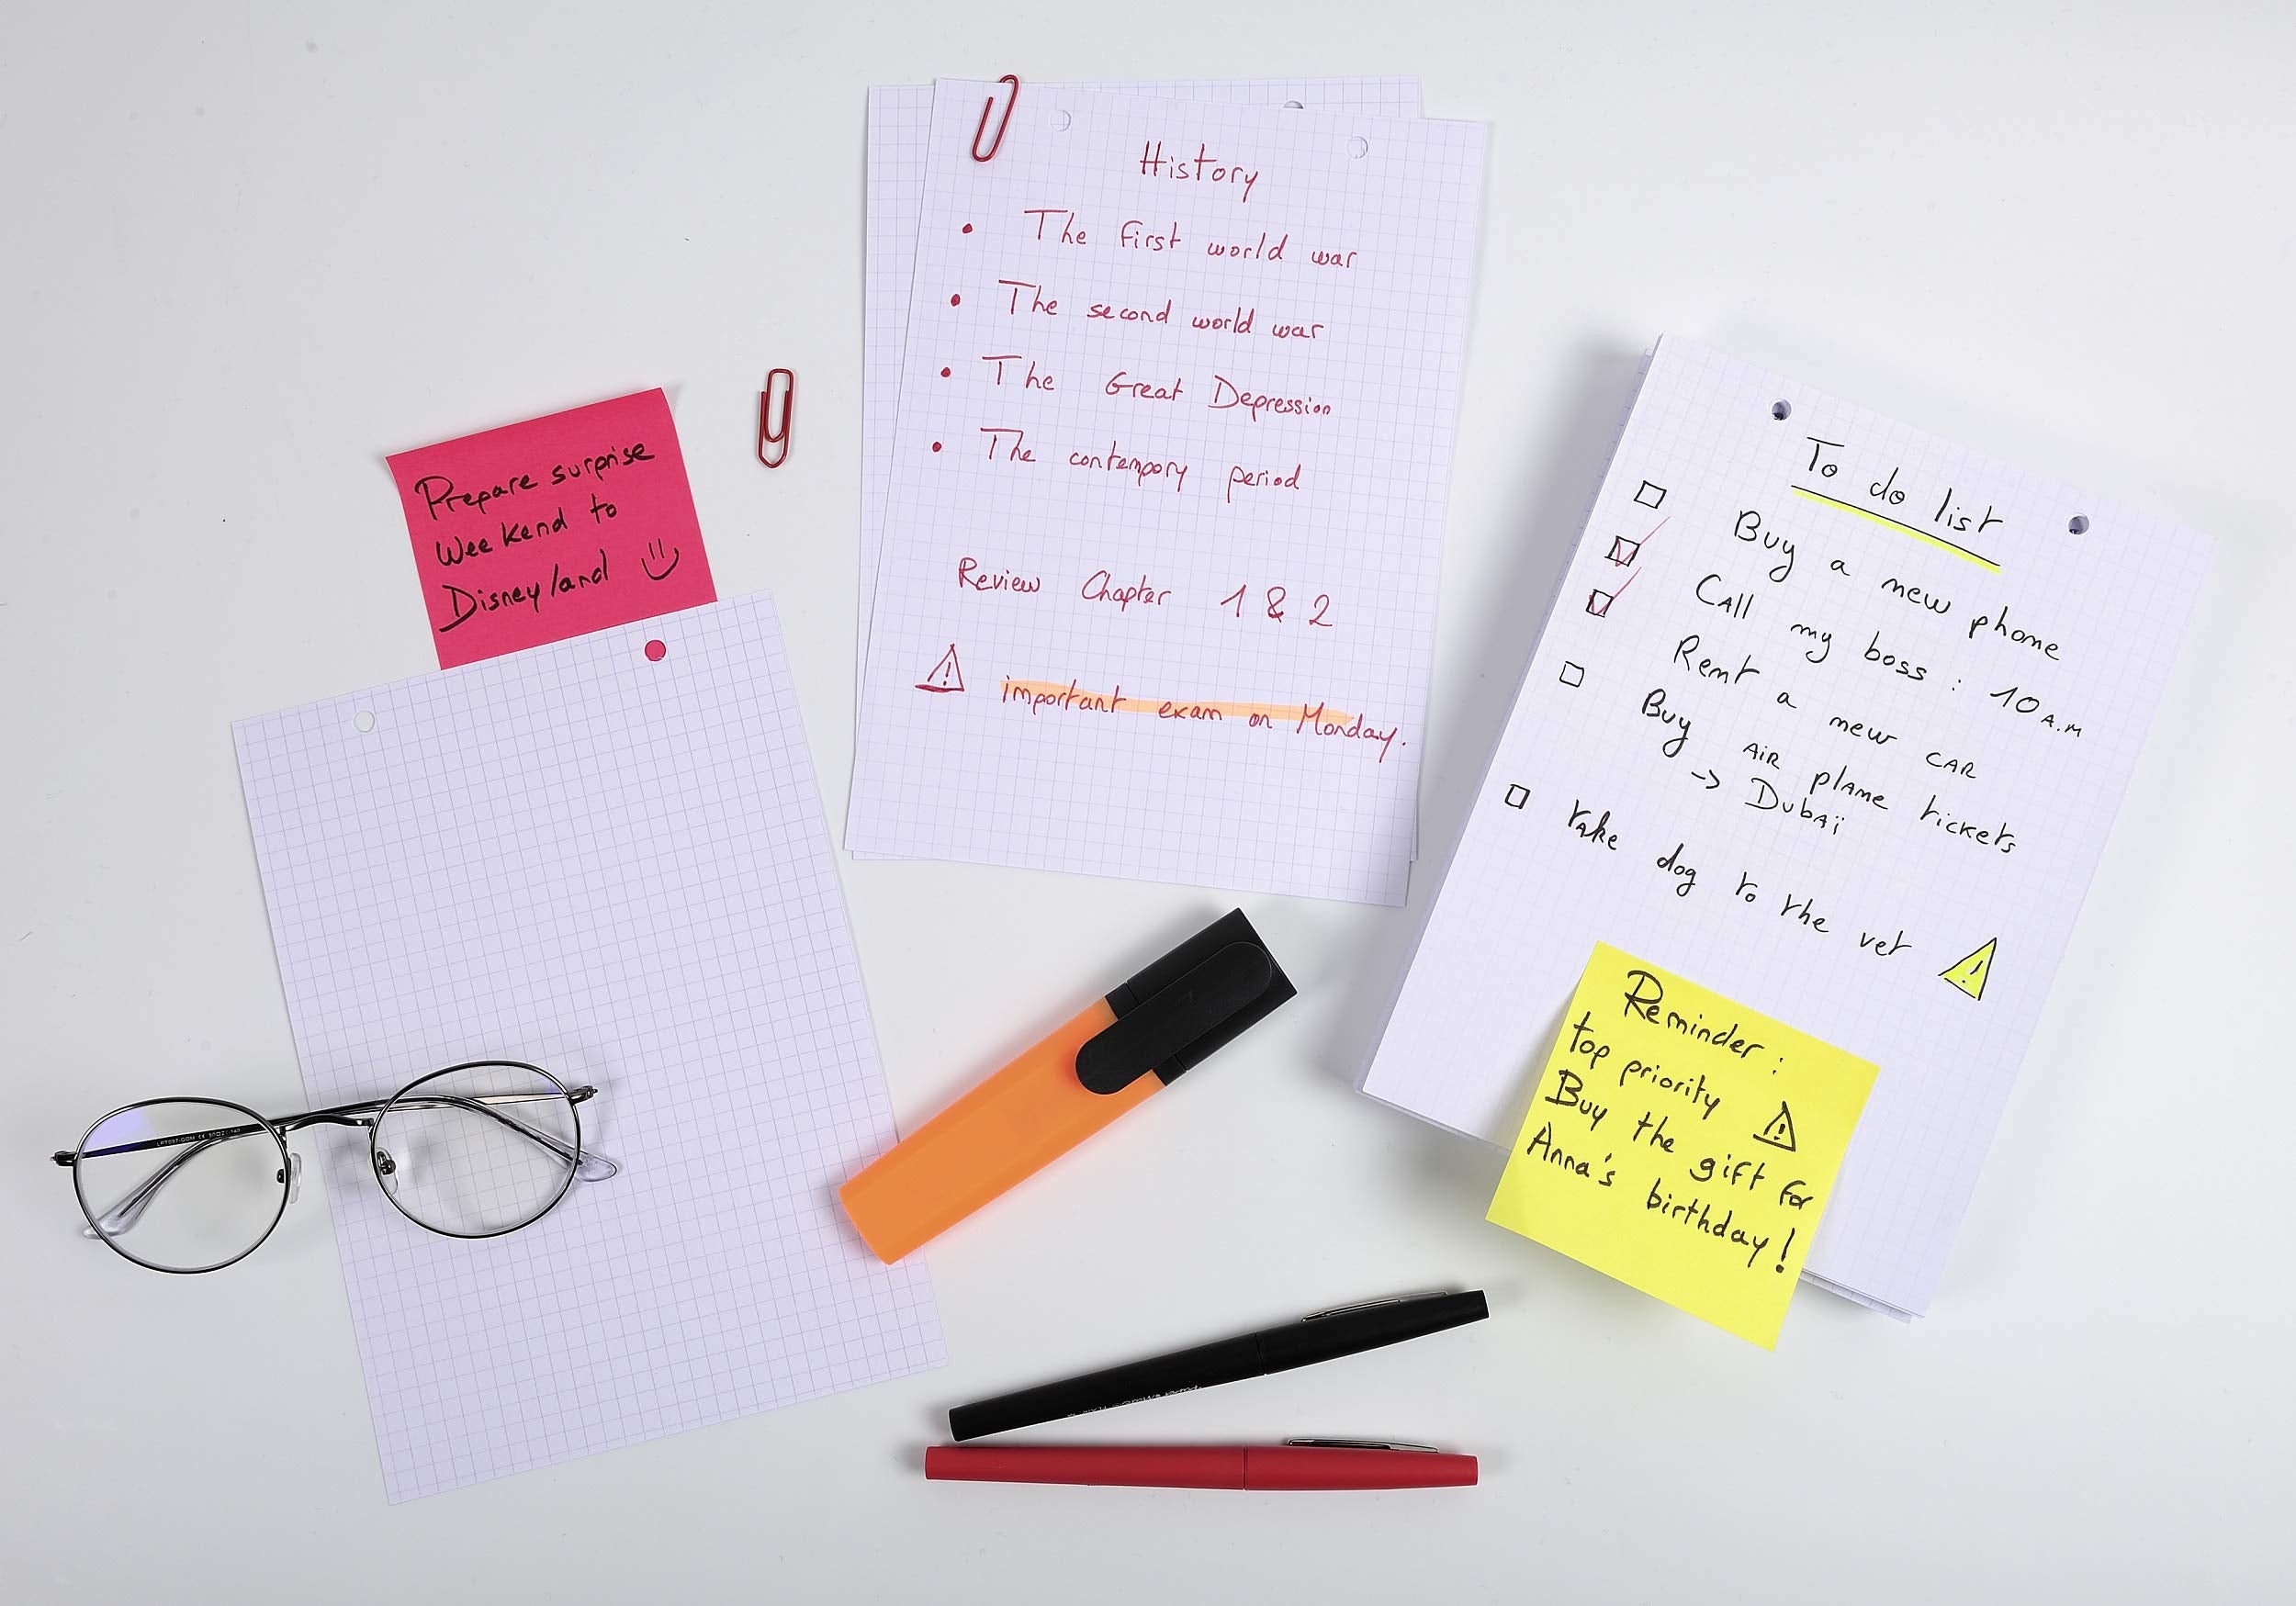 Prepare surprise
Weekend to
Disneyland
History
• The first world war
• The second world war
• The Great Depression
• The contempory period
Review Chapter 1 & 2
important exam on Monday.
To do list
Buy a new phone
Call my boss : 10 A.M
Rent a new CAR
Buy AiR plAne tickets
-> DubAï
take dog to the vet
Reminder :
top priority
Buy the gift for
Anna's birthday!